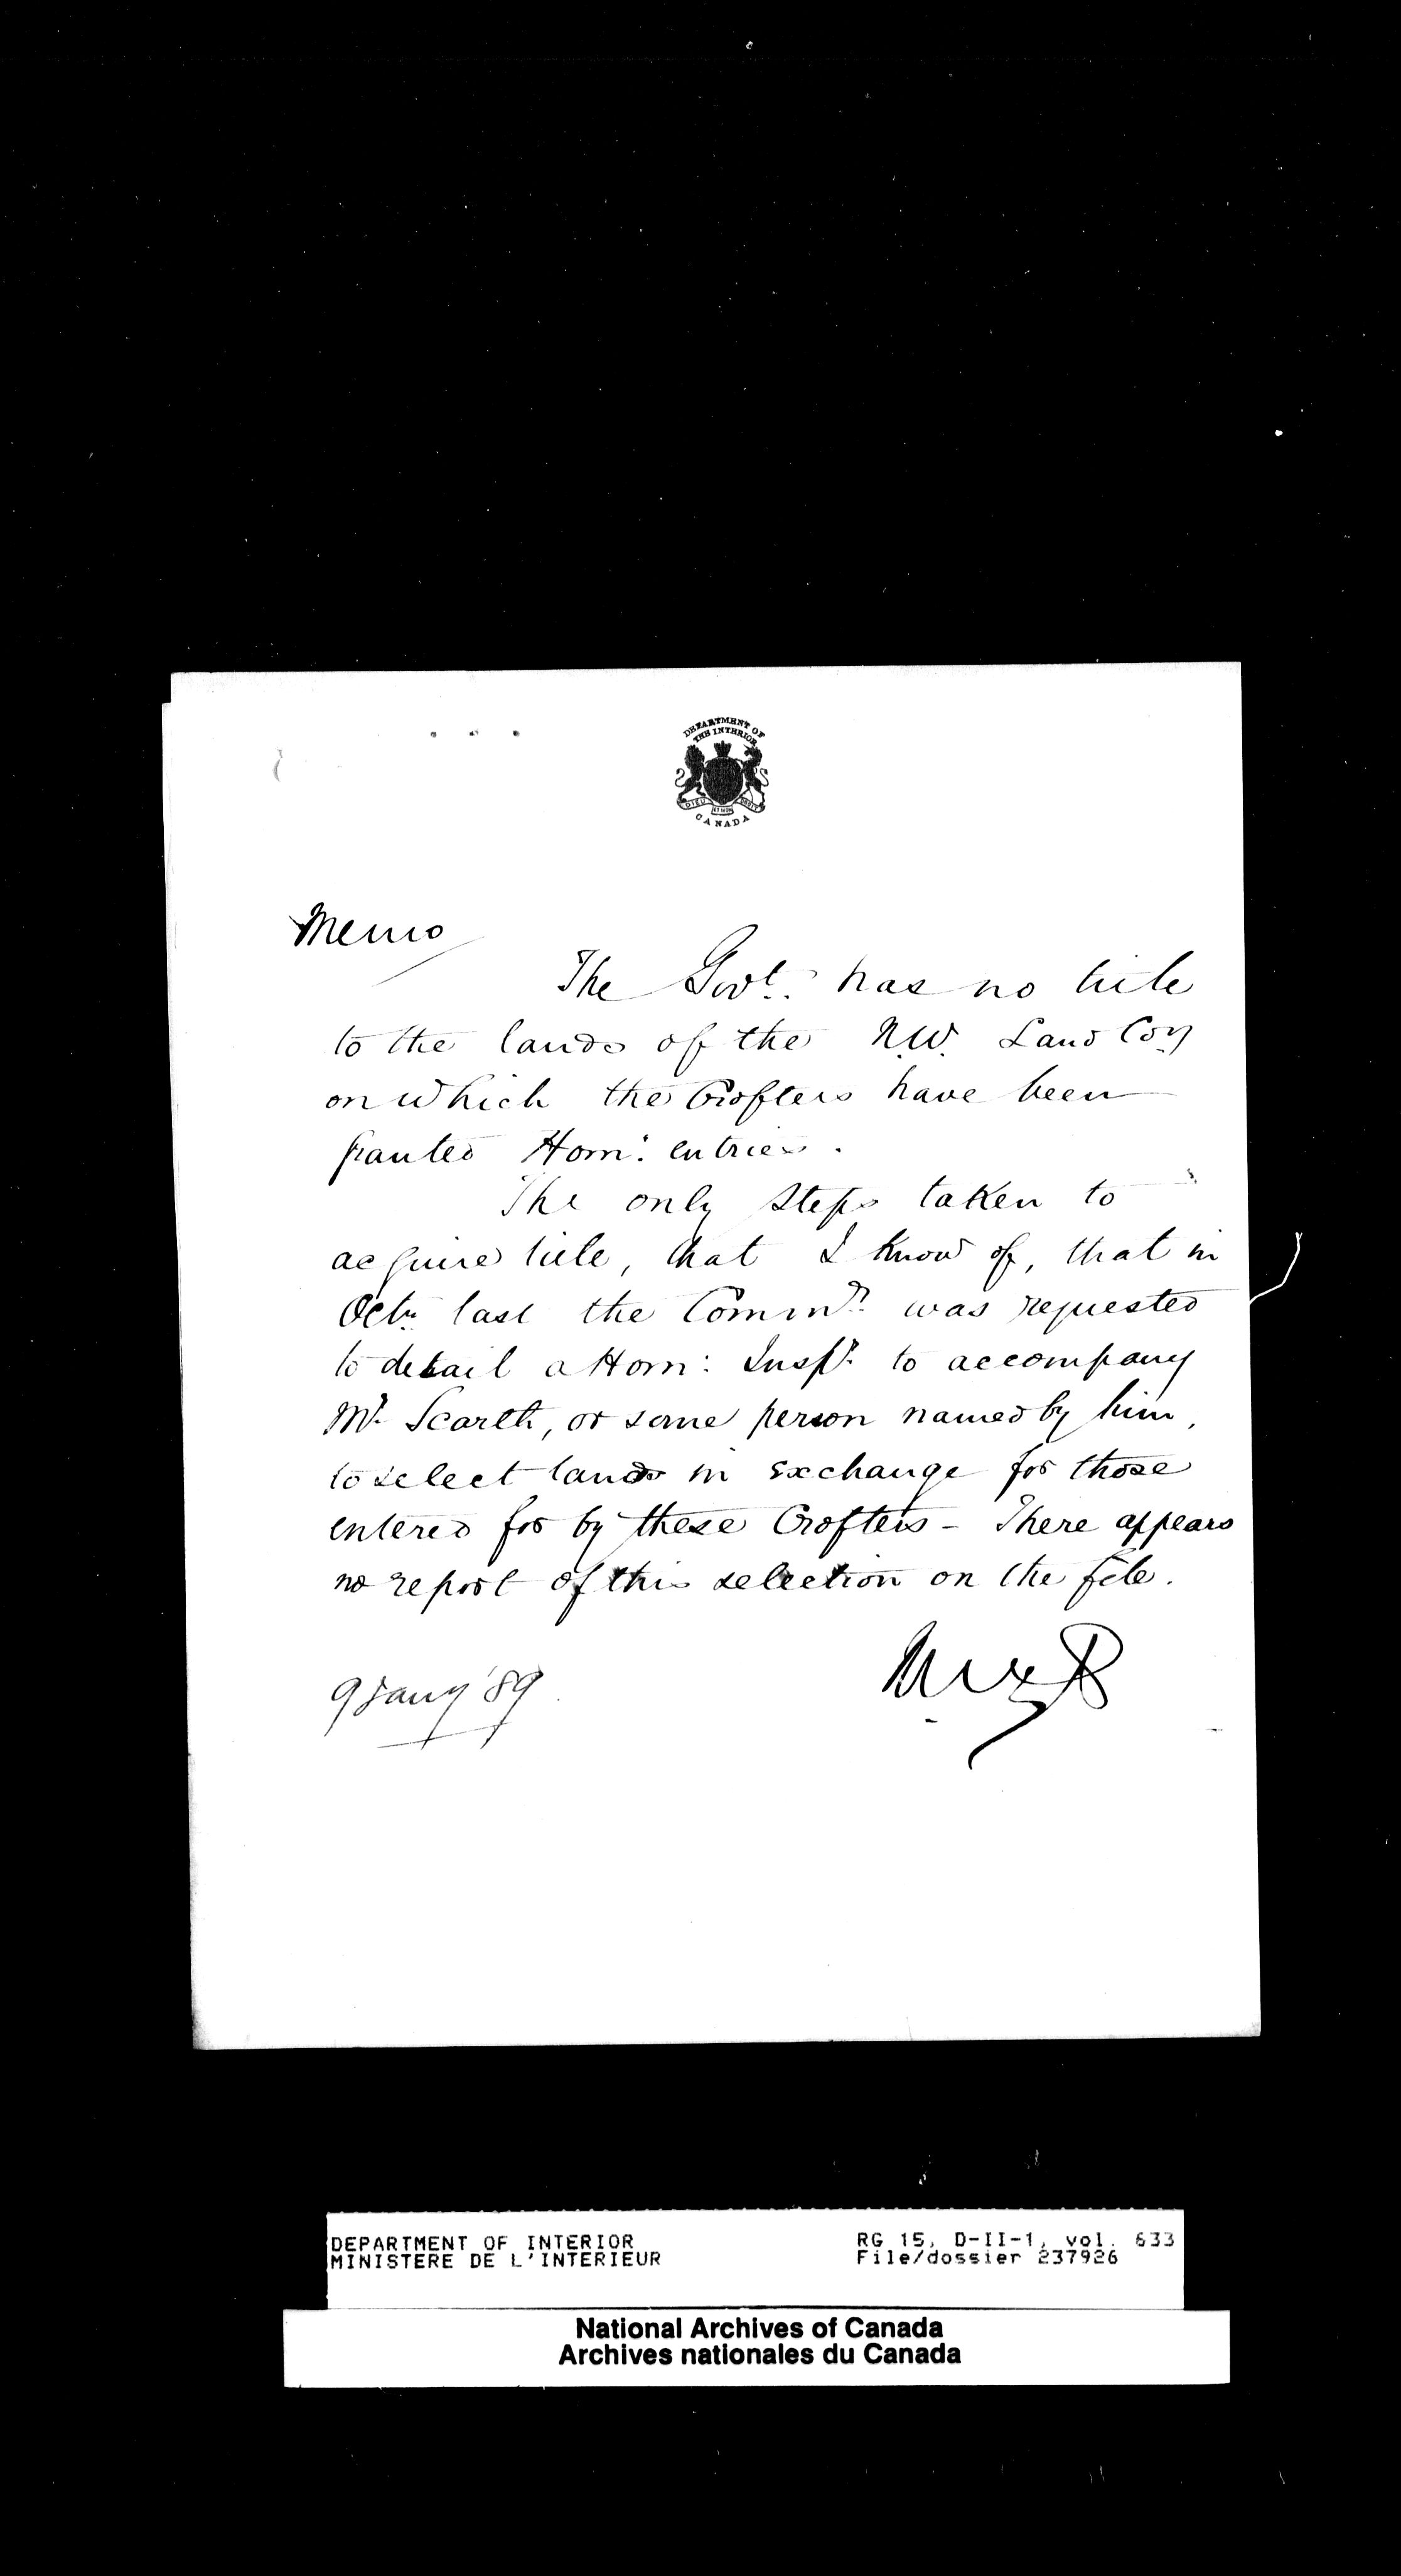 DEPARTMENT OF
THE INTERIOR
DIEU ET MON DROIT
CANADA
Memo
The Govt. has no title
to the lands of the N.W. Land Coy
on which the Crofters have been
granted Hom: entries.
The only steps taken to
acquire title, that I know of, that in
Octr. last the Commr. was requested
to detail a Hom: Inspr. to accompany
Mr. Scarth, or some person named by him,
to select lands in exchange for those
entered for by these Crofters - There appears
no report of this selection on the file.
9 Jany '89
DEPARTMENT OF INTERIOR
MINISTERE DE L'INTERIEUR
RG 15, D-II-1, vol. 633
File/dossier 237926
National Archives of Canada
Archives nationales du Canada